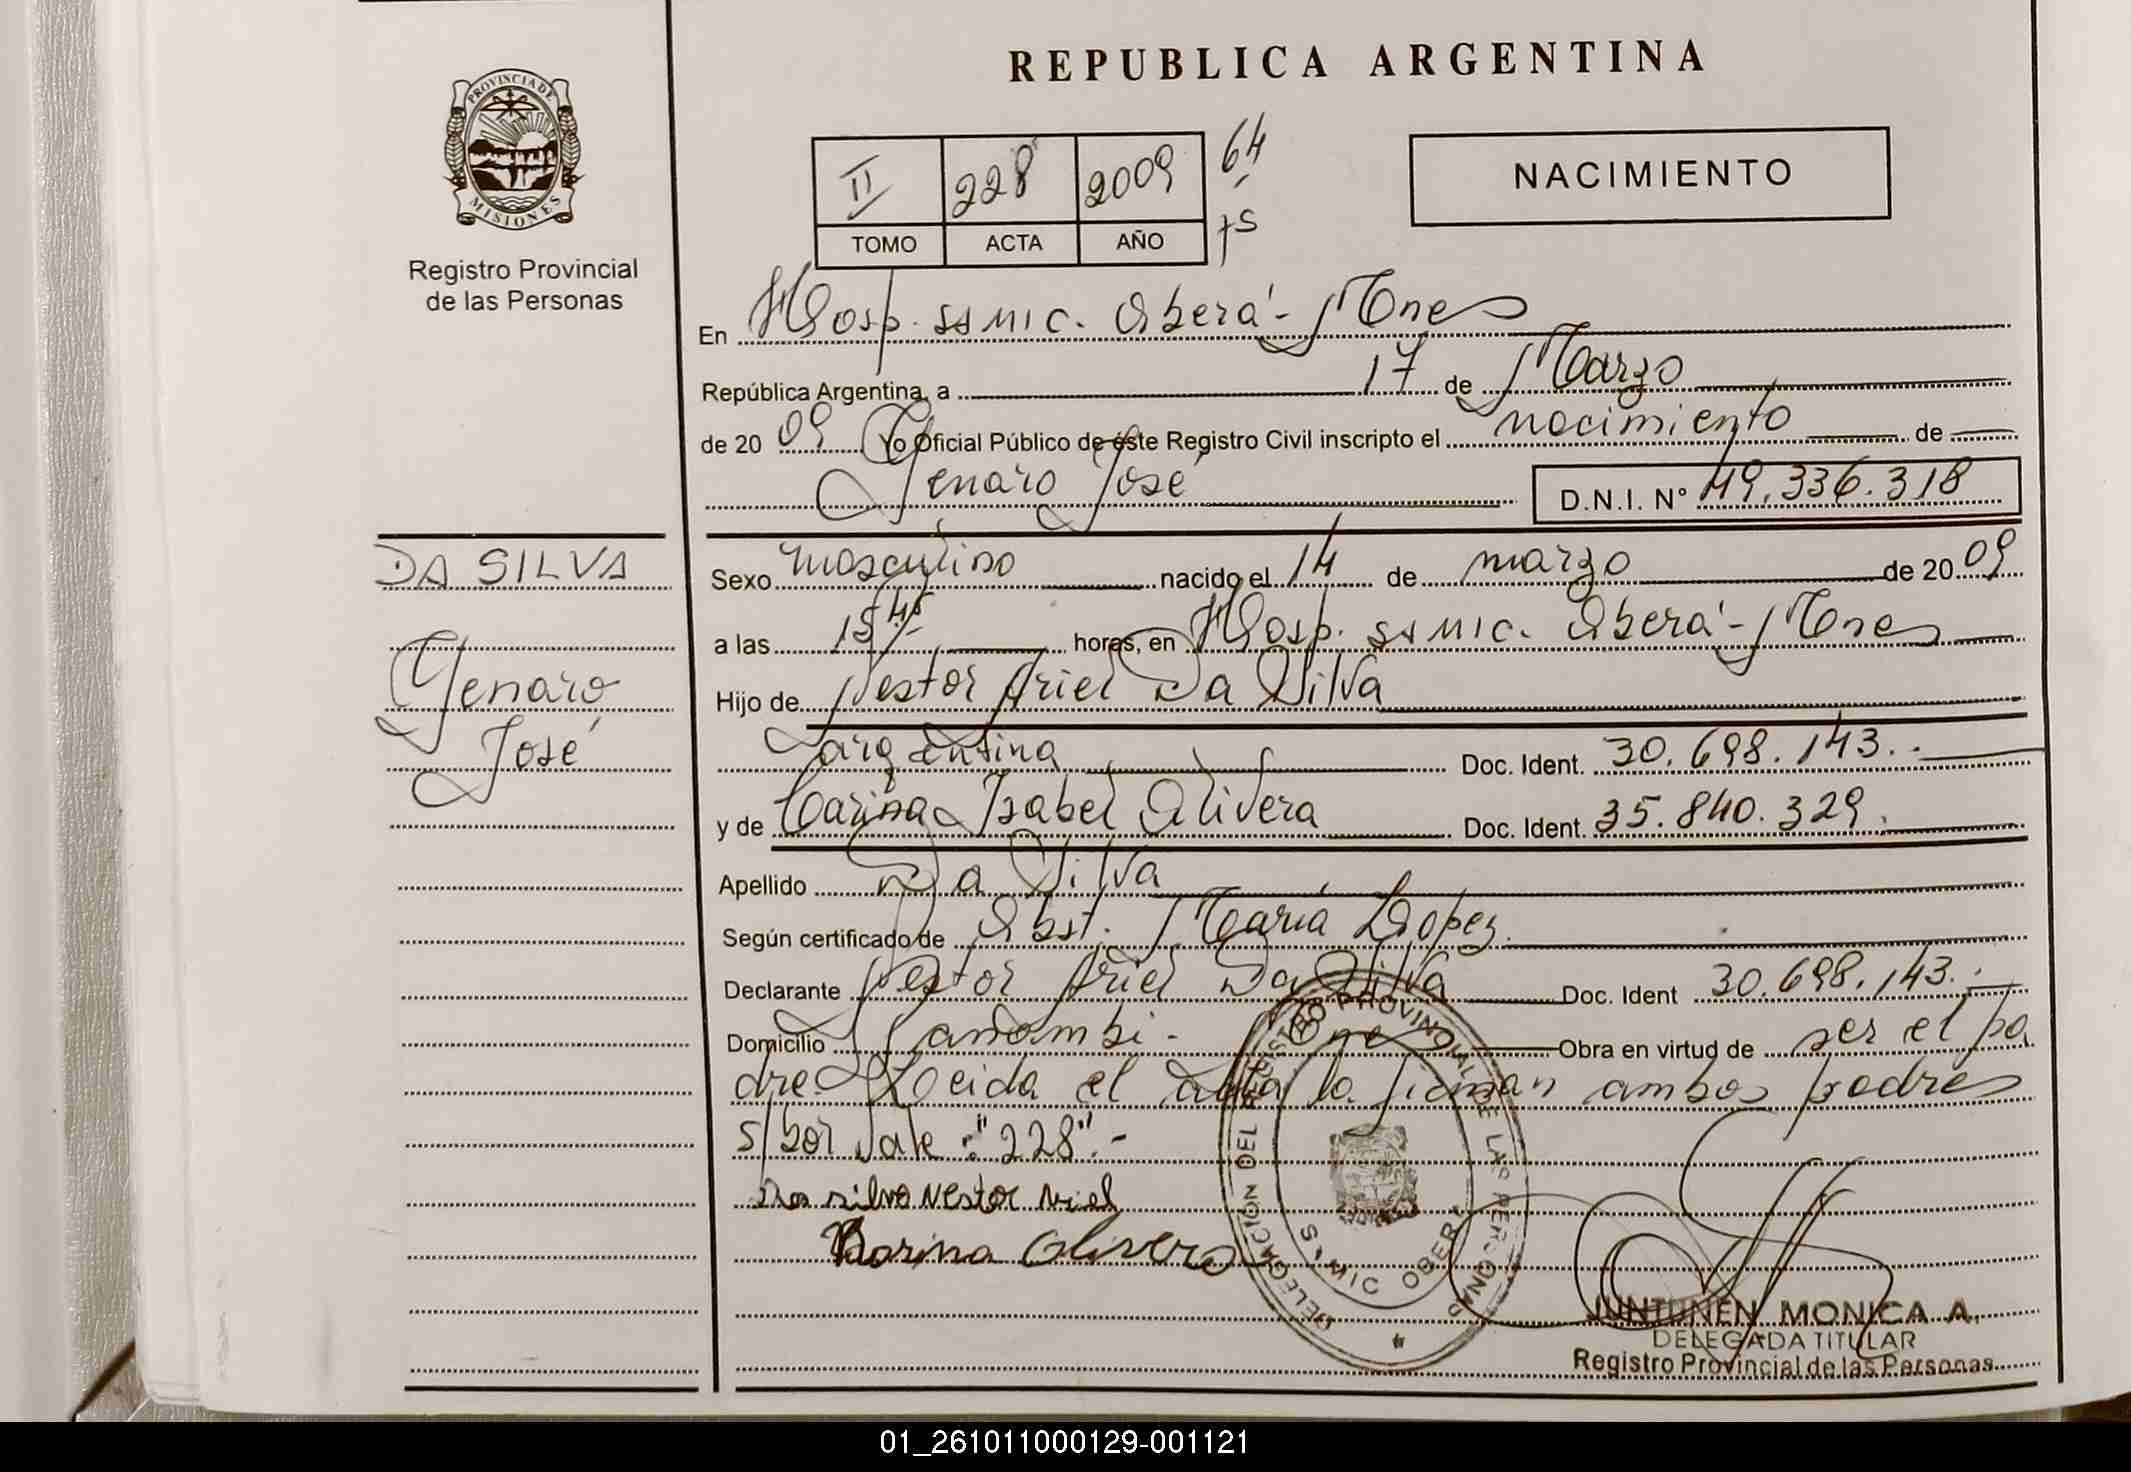 REPUBLICA ARGENTINA
PROVINCIA DE
MISIONES
Registro Provincial
de las Personas
II 228 2009 64
TOMO ACTA AÑO
NACIMIENTO
En Hosp. SAMIC. Oberá - Mnes
República Argentina, a 17 de Marzo
de 20 09 Yo Oficial Público de éste Registro Civil inscripto el nacimiento de
Genaro José D.N.I. N° 49.336.318
DA SILVA
Genaro
José
Sexo masculino nacido el 14 de marzo de 20 09
a las 15 45 horas, en Hosp. SAMIC. Oberá - Mnes
Hijo de Nestor Ariel Da Silva
argentina Doc. Ident. 30.698.143.-
y de Carina Isabel Olivera Doc. Ident. 35.840.329.
Apellido Da Silva
Según certificado de Obst. María Lopez.
Declarante Nestor Ariel Da Silva Doc. Ident 30.698.143.-
Domicilio Panambi - Mnes Obra en virtud de ser el pa
dre. Leida el acta la firman ambos padres
S/bor Vale: "228".-
Da silva Nestor Ariel
Karina Olivera
DELEGACION DEL REGISTRO PROVINCIAL DE LAS PERSONAS
SAMIC OBERA
JUNTUNEN MONICA A.
DELEGADA TITULAR
Registro Provincial de las Personas
01_261011000129-001121